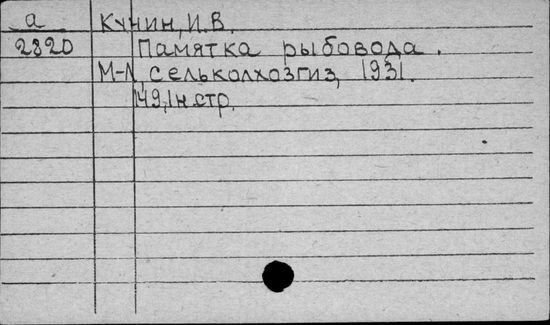 а Кунин, И.В.
2820 Памятка рыбовода.
М-Л, сельколхозгиз, 1931.
149, 1н.стр.